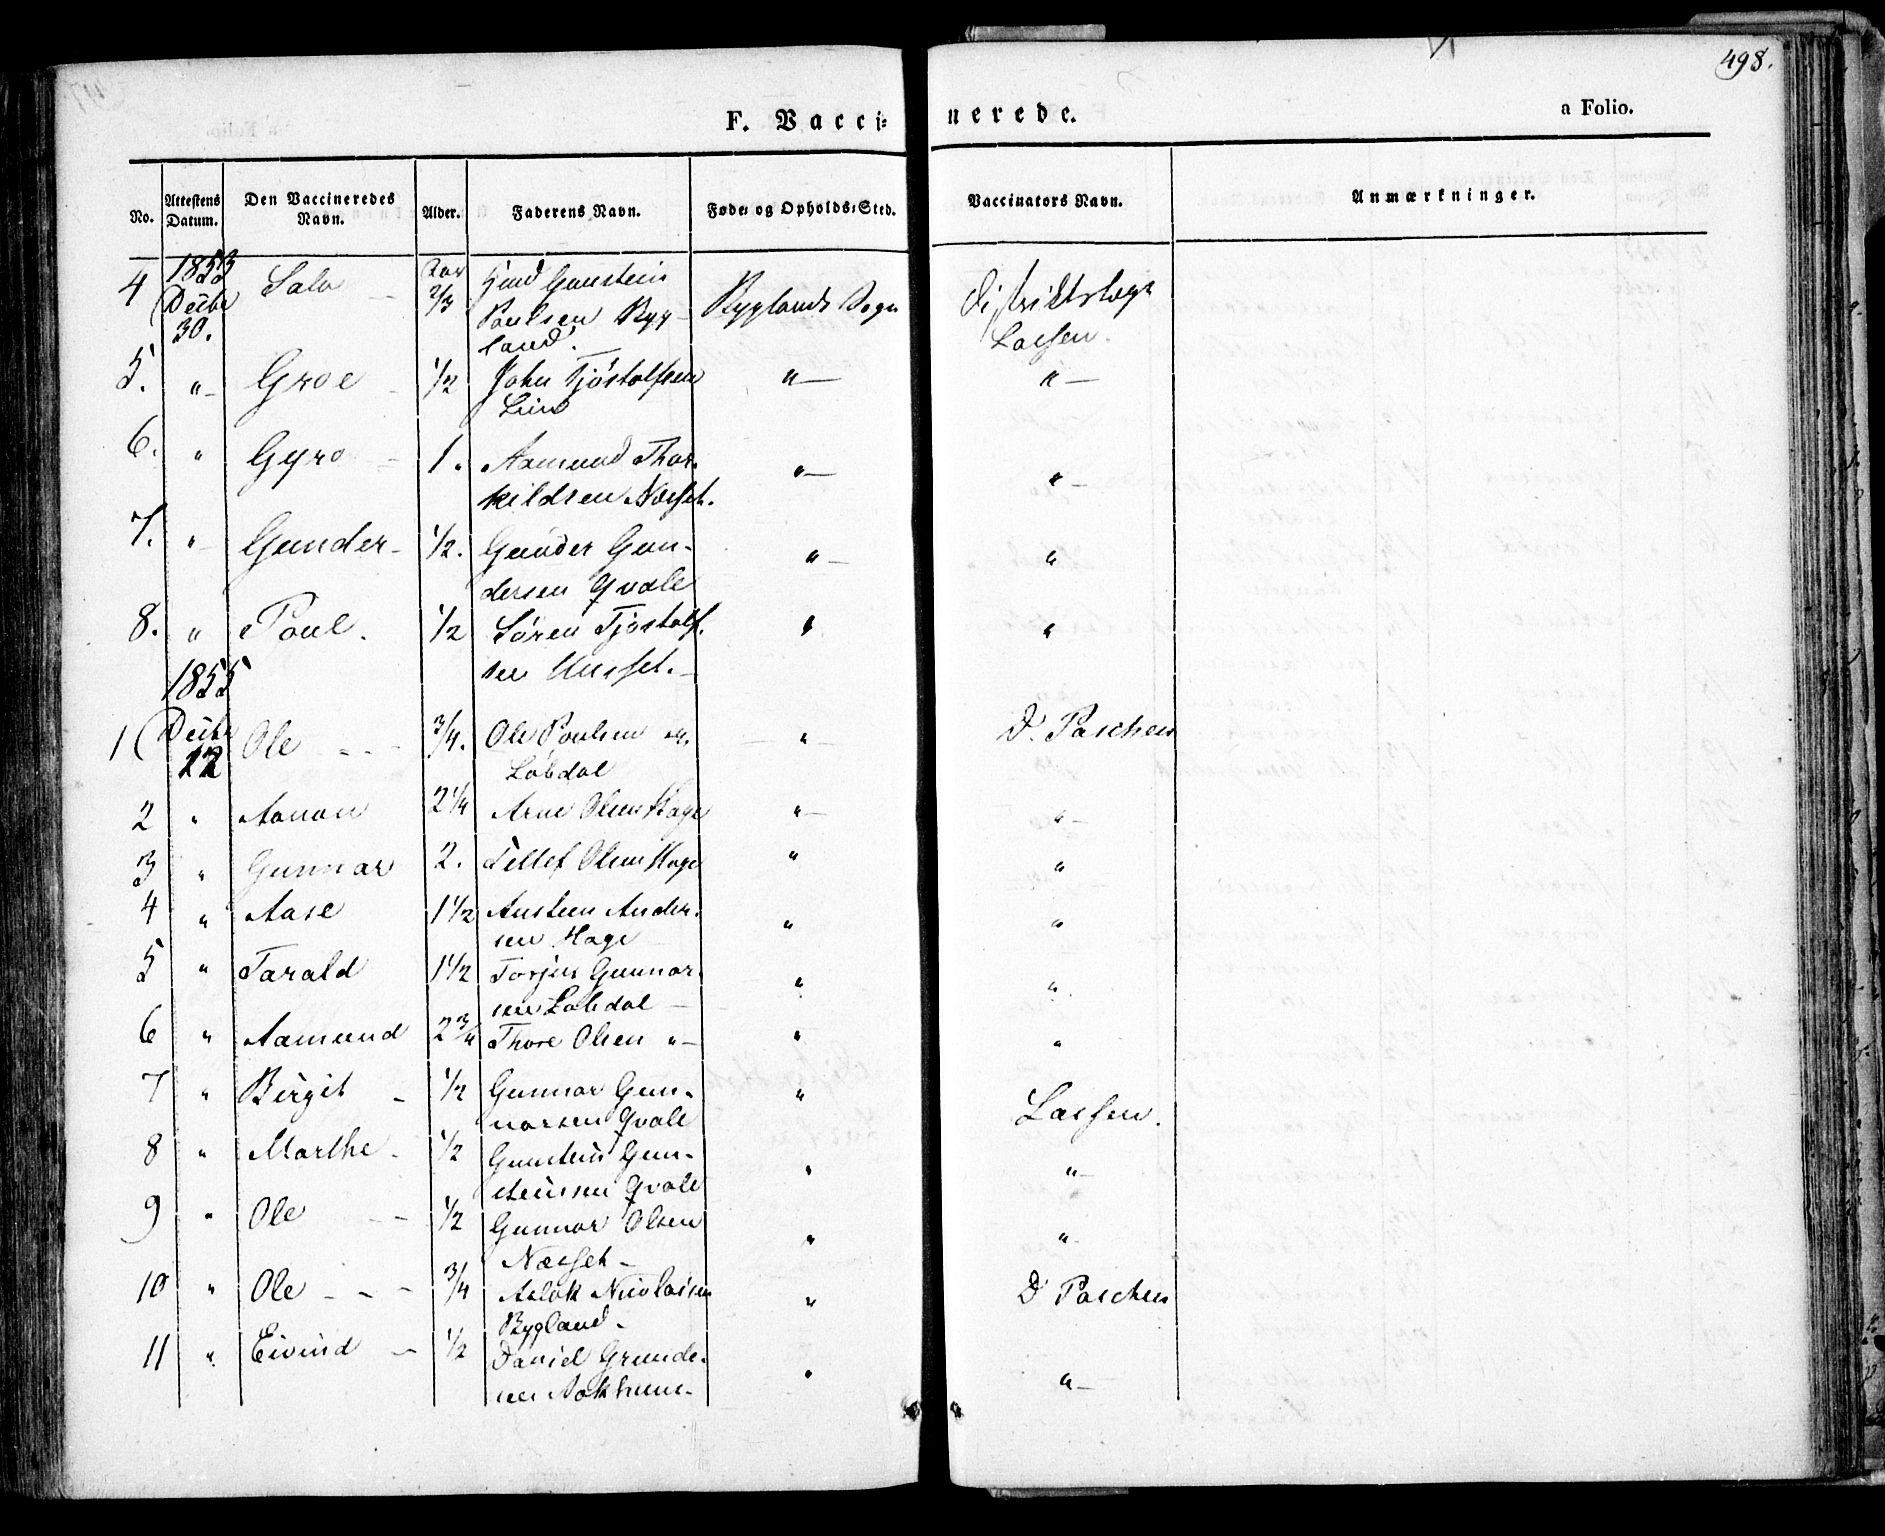 498.
F. Vacci⸗ nerede.
a Folio.
No. Attestens Datum. Den Vaccineredes Navn. Alder. Faderens Navn. Føde⸗ og Opholds⸗Sted. Vaccinators Navn. Anmærkninger.
4 1853 Decbr 30. Aar 2/3 Gunstein Poulsen Bygland. Byglands Sogn Distriktslæge Lassen.
5. " Groe ½ John Tjøstolfsen " "
6. " Gyro 1. Aamund Thorkildsen Næsset. " "
7. " Gunder ½. Gunder Gundersen Qvale " "
8. " Poul. ½ Søren Tjøstolfsen " "
1855
1 Decbr 12 Ole ¾. Ole Poulsen Løbdal " D. Paschen
2 " Aanon 2¼ Arne Olsen Hage " "
3 " Gunnar 2. Tellef Olsen Hage " "
4 " Aase 1½ Austeen Andersen Hage " "
5 " Tarald 1½ Torjus Gunnarsen Løbdal " "
6 " Aamund 2¾ Thore Olsen " " "
7 " Birgit ½ Gunnar Gunnarsen Qvale " Lassen.
8 " Marthe ½ Gunstein Gunsteinsen Qvale " "
9 " Ole ½ Gunnar Olsen Næsset " "
10 " Ole ¾ Aslak Nicolaisen Bygland " D Paschen
11 " Eivind ½ Daniel " "